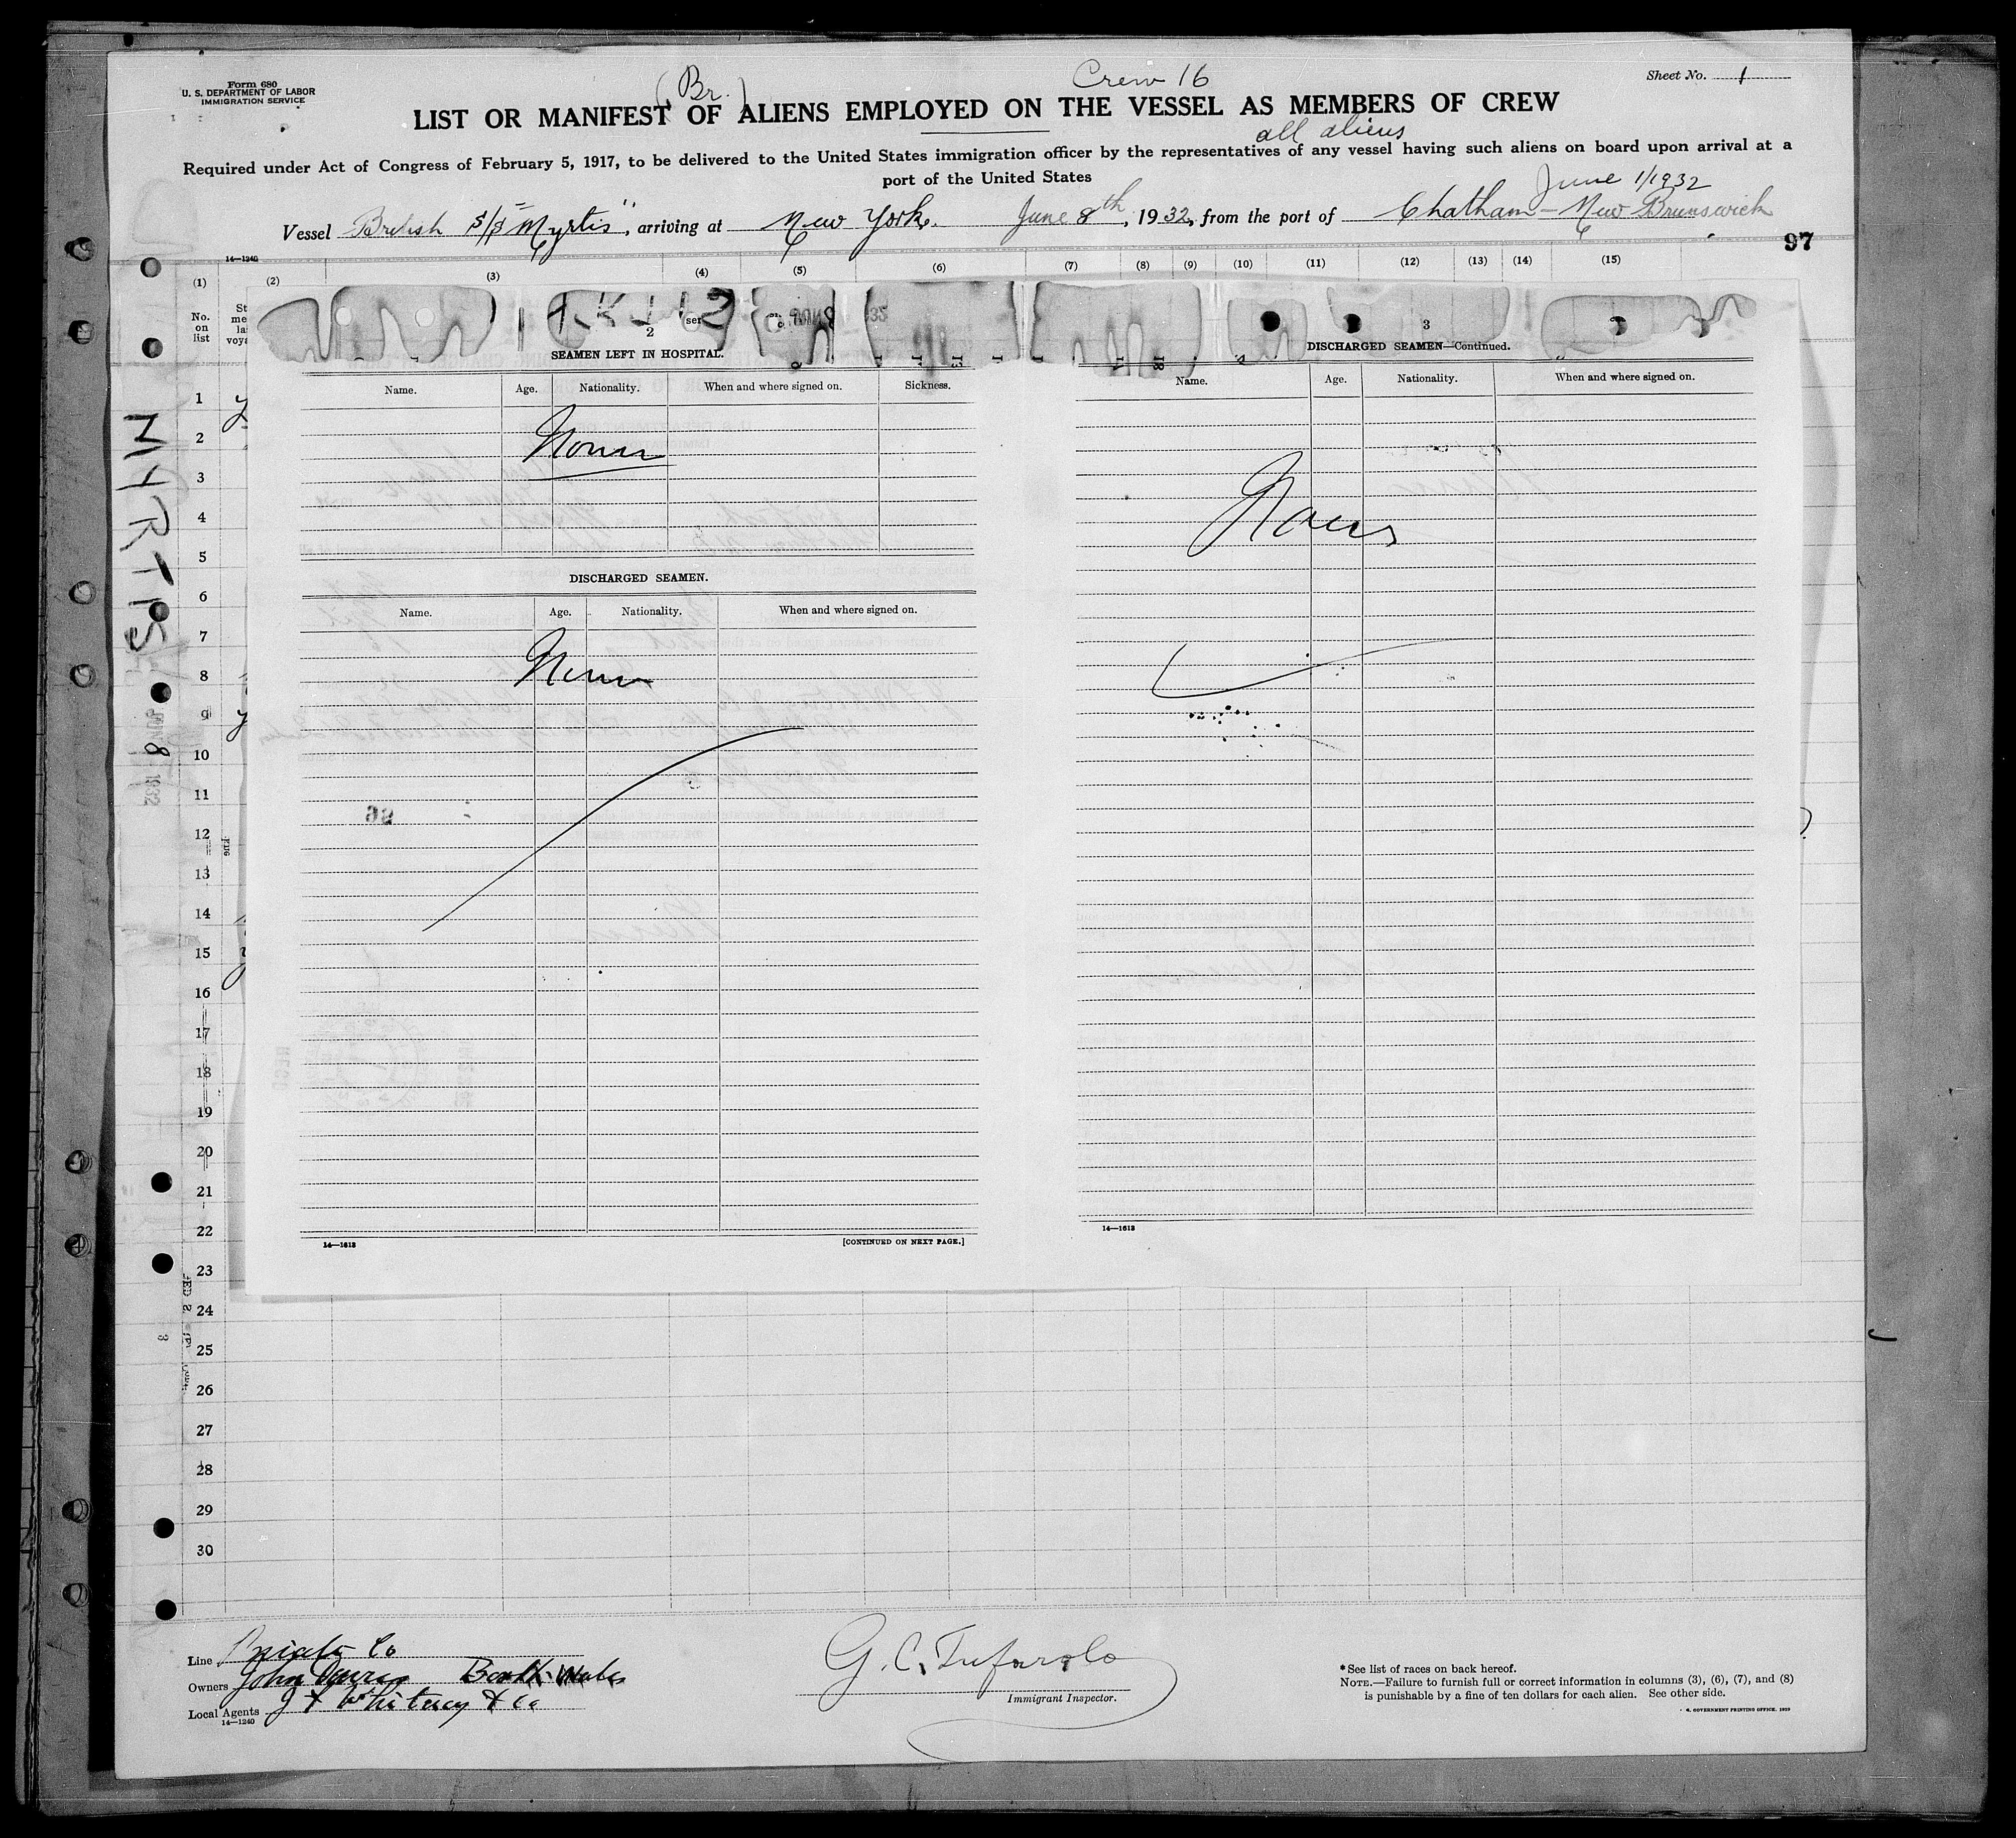 Form 680
U. S. DEPARTMENT OF LABOR
IMMIGRATION SERVICE
(Br.)
Crew 16
Sheet No. 1
LIST OR MANIFEST OF ALIENS EMPLOYED ON THE VESSEL AS MEMBERS OF CREW
all aliens
Required under Act of Congress of February 5, 1917, to be delivered to the United States immigration officer by the representatives of any vessel having such aliens on board upon arrival at a
port of the United States
June 1/1932
Vessel British S/S "Myrtis", arriving at New York. June 8th, 1932, from the port of Chatham - New Brunswick
97
14—1240
(1) (2) (3) (4) (5) (6) (7) (8) (9) (10) (11) (12) (13) (14) (15)
No. on list
2
3
SEAMEN LEFT IN HOSPITAL.
DISCHARGED SEAMEN—Continued.
Name. Age. Nationality. When and where signed on. Sickness.
Name. Age. Nationality. When and where signed on.
None
None
DISCHARGED SEAMEN.
Name. Age. Nationality. When and where signed on.
None
MYRTIS
JUN 8 1932
1
2
3
4
5
6
7
8
9
10
11
12
13
14
15
16
17
18
19
20
21
22
23
24
25
26
27
28
29
30
14—1613
[CONTINUED ON NEXT PAGE.]
14—1613
Line Private Co
Owners John
Local Agents J F Whitney & Co
14—1240
G. C. Tufarolo
Immigrant Inspector.
*See list of races on back hereof.
NOTE.—Failure to furnish full or correct information in columns (3), (6), (7), and (8)
is punishable by a fine of ten dollars for each alien. See other side.
GOVERNMENT PRINTING OFFICE.